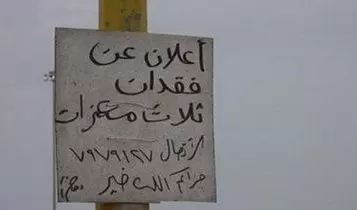 أعلان عن
فقدان
ثلاث معزات
الأتصال ٧٩٧٩١٢٧
جزاكم الله خير